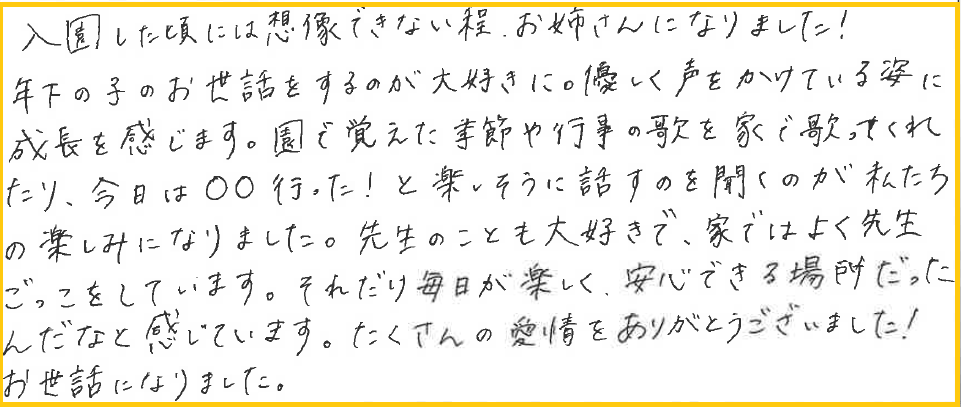 入園した頃には想像できない程、お姉さんになりました！
年下の子のお世話をするのが大好きに。優しく声をかけている姿に
成長を感じます。園で覚えた季節や行事の歌を家で歌ってくれ
たり、今日は〇〇行った！と楽しそうに話すのを聞くのが私たち
の楽しみになりました。先生のことも大好きで、家ではよく先生
ごっこをしています。それだけ毎日が楽しく、安心できる場所だった
んだなと感じています。たくさんの愛情をありがとうございました！
お世話になりました。